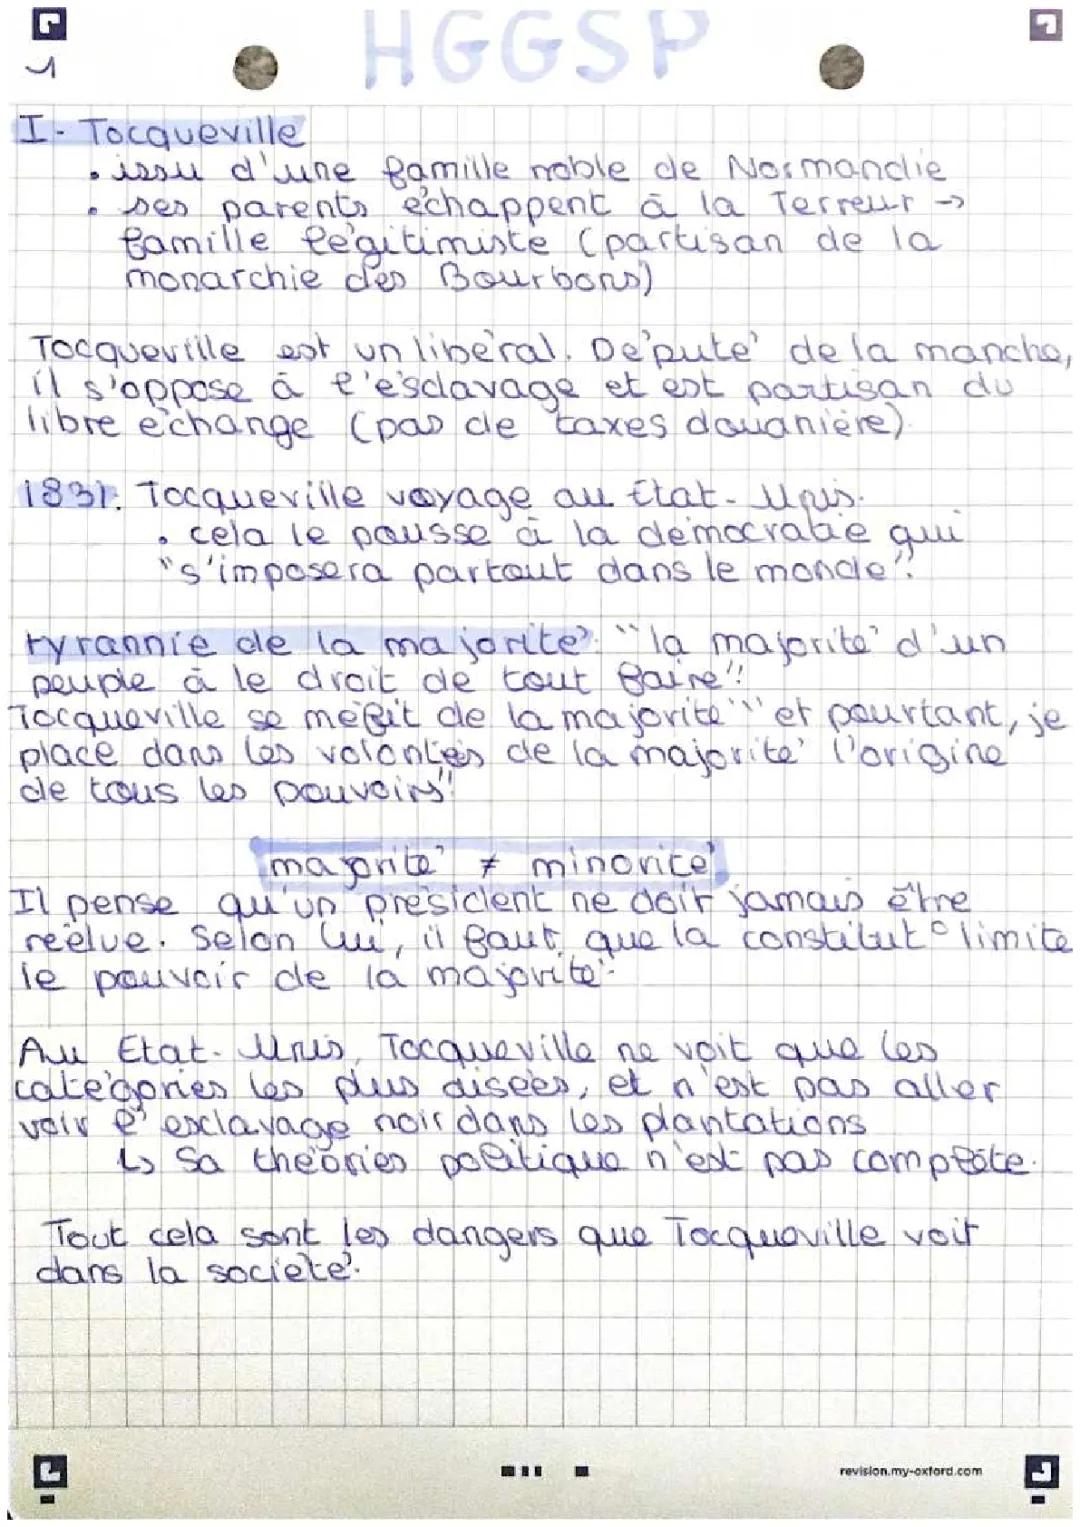 HGGSP
1
I- Tocqueville
• issu d'une famille noble de Normandie
• ses parents échappent à la Terreur →
famille légitimiste (partisan de la
monarchie des Bourbons)
Tocqueville est un libéral. Député de la manche,
il s'oppose à l'esclavage et est partisan du
libre échange (pas de taxes douanière).
1831: Tocqueville voyage au État-Unis.
• cela le pousse à la démocratie qui
"s'imposera partout dans le monde".
tyrannie de la majorité: "la majorité d'un
peuple à le droit de tout faire".
Tocqueville se méfit de la majorité "et pourtant, je
place dans les volontés de la majorité l'origine
de tous les pouvoirs".
majorité ≠ minorité
Il pense qu'un président ne doit jamais être
réélue. Selon lui, il faut que la constitut° limite
le pouvoir de la majorité.
Au Etat-Unis, Tocqueville ne voit que les
catégories les plus aisées, et n'est pas aller
voir l'esclavage noir dans les plantations
↳ Sa théories politique n'est pas complète.
Tout cela sont les dangers que Tocqueville voit
dans la société.
revision.my-oxford.com